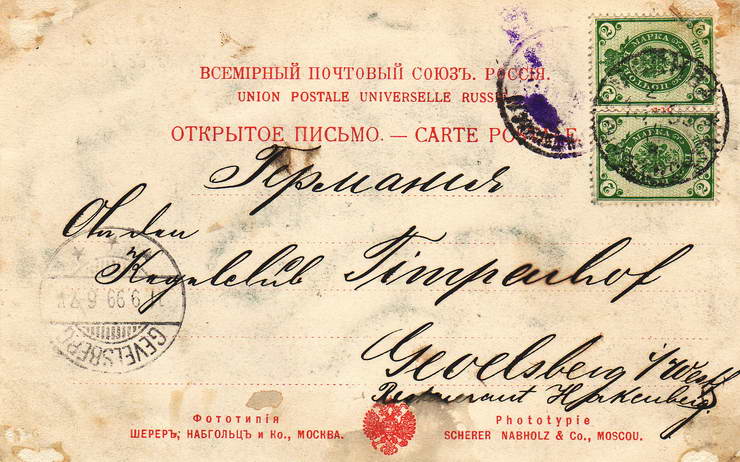 ВСЕМІРНЫЙ ПОЧТОВЫЙ СОЮЗЪ. РОССІЯ.
UNION POSTALE UNIVERSELLE RUSSIE
ОТКРЫТОЕ ПИСЬМО. — CARTE POSTALE
2 МАРКА 2
2 МАРКА 2
Германия
An den
Kegelclub Timpenhof
Gevelsberg i/Westf
Restaurant Harkenberg.
GEVELSBERG
Фототипія
ШЕРЕРЪ, НАБГОЛЬЦЪ и Ко., МОСКВА.
Phototypie
SCHERER NABHOLZ & Co., MOSCOU.